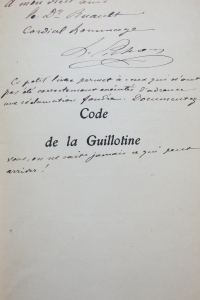 A mon vieil ami
le Dr Ruault
Cordial hommage
Ce petit livre permet à ceux qui n'ont
pas été correctement exécutés d'adresser
une réclamation fondée. Documentez
Code
de la Guillotine
vous, on ne sait jamais ce qui peut
arriver !